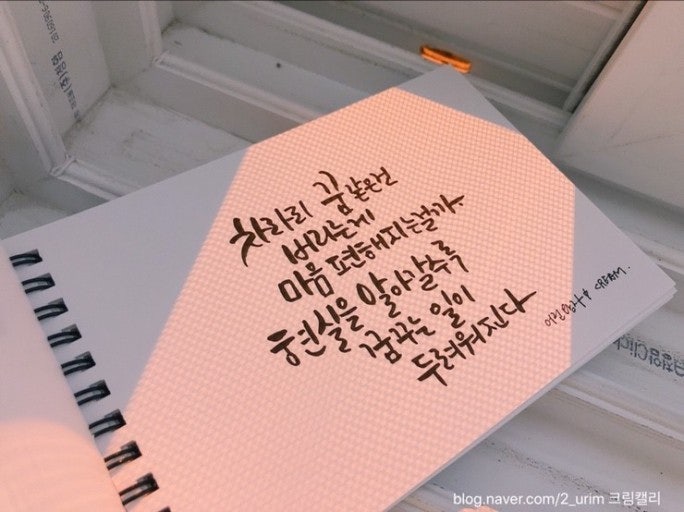 차라리 꿈같은건
버리는게
마음 편해지는걸까
현실을 알아갈수록
꿈꾸는 일이
두려워진다
CREAM.
blog.naver.com/2_urim 크림캘리